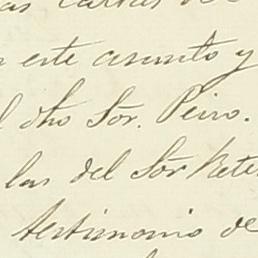 as cartas de
este asunto y
dho Sōr. Peiro.
las del Sōr Rete
testimonio de